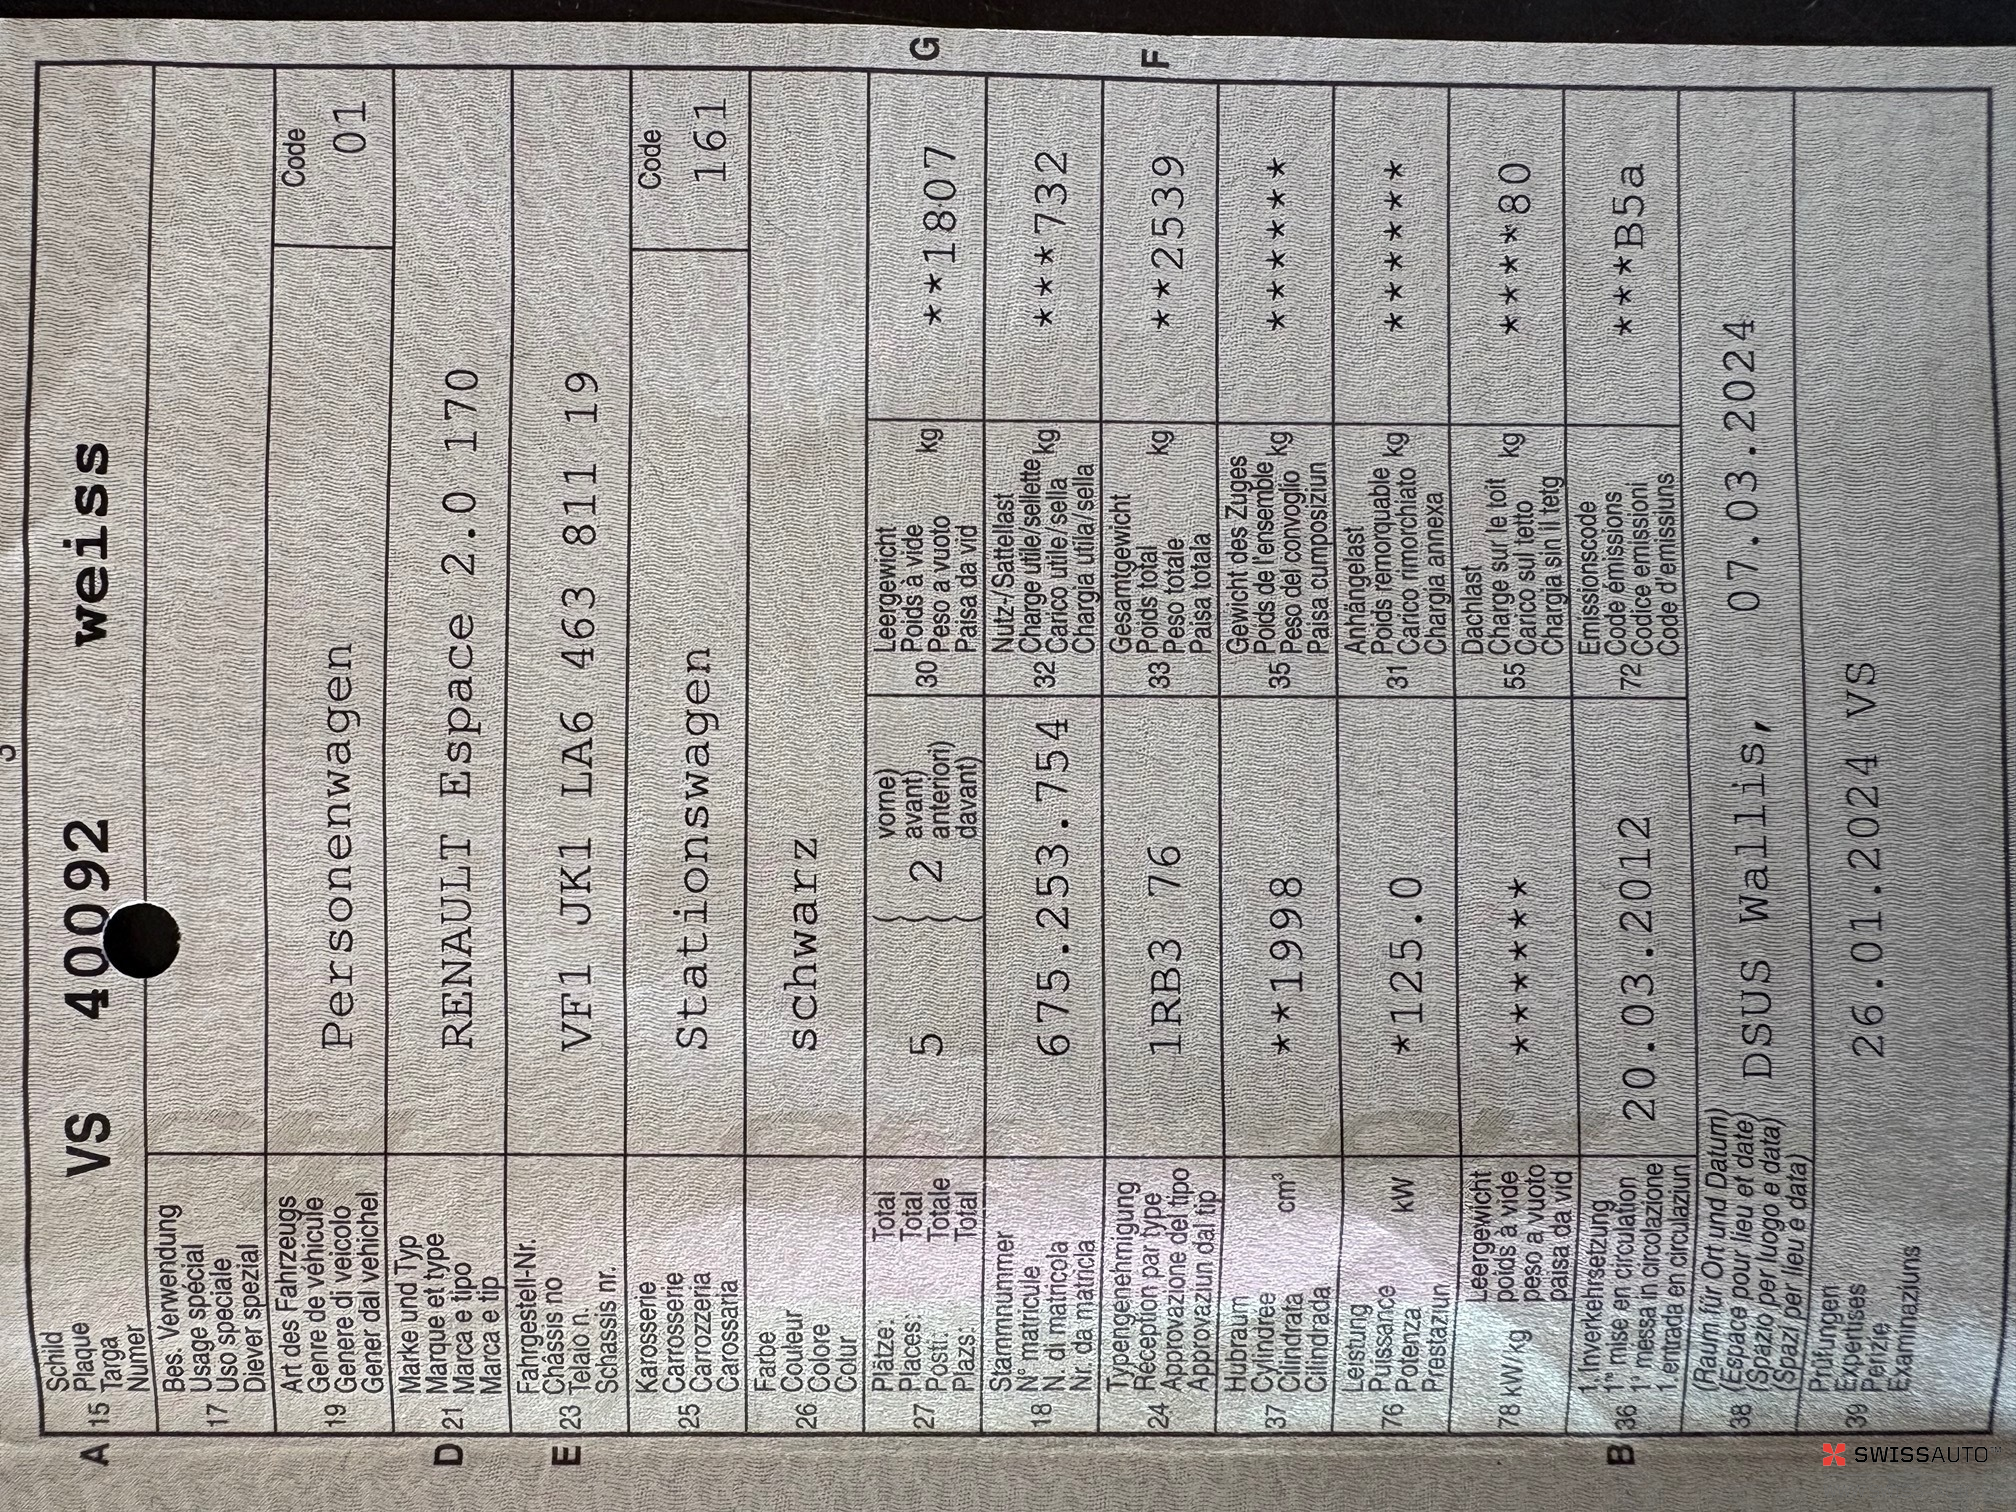 A 15 Schild
Plaque
Targa
Numer
VS 40092 weiss
17 Bes. Verwendung
Usage spécial
Uso speciale
Diever spezial
19 Art des Fahrzeugs
Genre de véhicule
Genere di veicolo
Gener dal vehichel
Personenwagen
Code
01
D 21 Marke und Typ
Marque et type
Marca e tipo
Marca e tip
RENAULT Espace 2.0 170
E 23 Fahrgestell-Nr.
Châssis no
Telaio n.
Schassis nr.
VF1 JK1 LA6 463 811 19
25 Karosserie
Carrosserie
Carrozzeria
Carossaria
Stationswagen
Code
161
26 Farbe
Couleur
Colore
Colur
schwarz
27 Plätze: Total
Places: Total
Posti: Totale
Plazs: Total
5 { 2 vorne)
avant)
anteriori)
davant)
30 Leergewicht
Poids à vide
Peso a vuoto kg
Paisa da vid
**1807
G
18 Stammnummer
N° matricule
N. di matricola
Nr. da matricla
675.253.754
32 Nutz-/Sattellast
Charge utile/sellette
Carico utile/sella kg
Chargia utila/sella
***732
24 Typengenehmigung
Réception par type
Approvazione del tipo
Approvaziun dal tip
1RB3 76
33 Gesamtgewicht
Poids total
Peso totale kg
Paisa totala
**2539
F
37 Hubraum
Cylindrée
Cilindrata cm³
Cilindrada
**1998
35 Gewicht des Zuges
Poids de l'ensemble
Peso del convoglio kg
Paisa cumposiziun
******
76 Leistung
Puissance
Potenza kW
Prestaziun
*125.0
31 Anhängelast
Poids remorquable
Carico rimorchiato kg
Chargia annexa
******
78 kW/kg Leergewicht
poids à vide
peso a vuoto
paisa da vid
******
55 Dachlast
Charge sur le toit
Carico sul tetto kg
Chargia sin il tetg
****80
B 36 1. Inverkehrsetzung
1re mise en circulation
1a messa in circolazione
1. entrada en circulaziun
20.03.2012
72 Emissionscode
Code émissions
Codice emissioni
Code d'emissiuns
***B5a
38 (Raum für Ort und Datum)
(Espace pour lieu et date)
(Spazio per luogo e data)
(Spazi per lieu e data)
DSUS Wallis, 07.03.2024
39 Prüfungen
Expertises
Perizie
Examinaziuns
26.01.2024 VS
SWISSAUTO